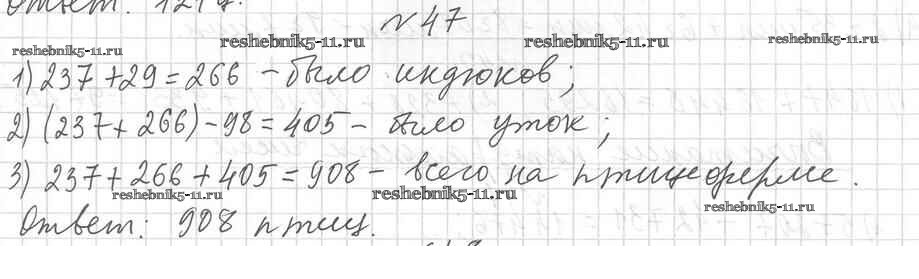 Ответ: 1217.
№47
reshebnik5-11.ru reshebnik5-11.ru reshebnik5-11.ru reshebnik5-11.ru
1) 237 + 29 = 266 - было индюков;
2) (237 + 266) - 98 = 405 - было уток;
3) 237 + 266 + 405 = 908 - всего на птицеферме.
reshebnik5-11.ru reshebnik5-11.ru reshebnik5-11.ru
Ответ: 908 птиц.